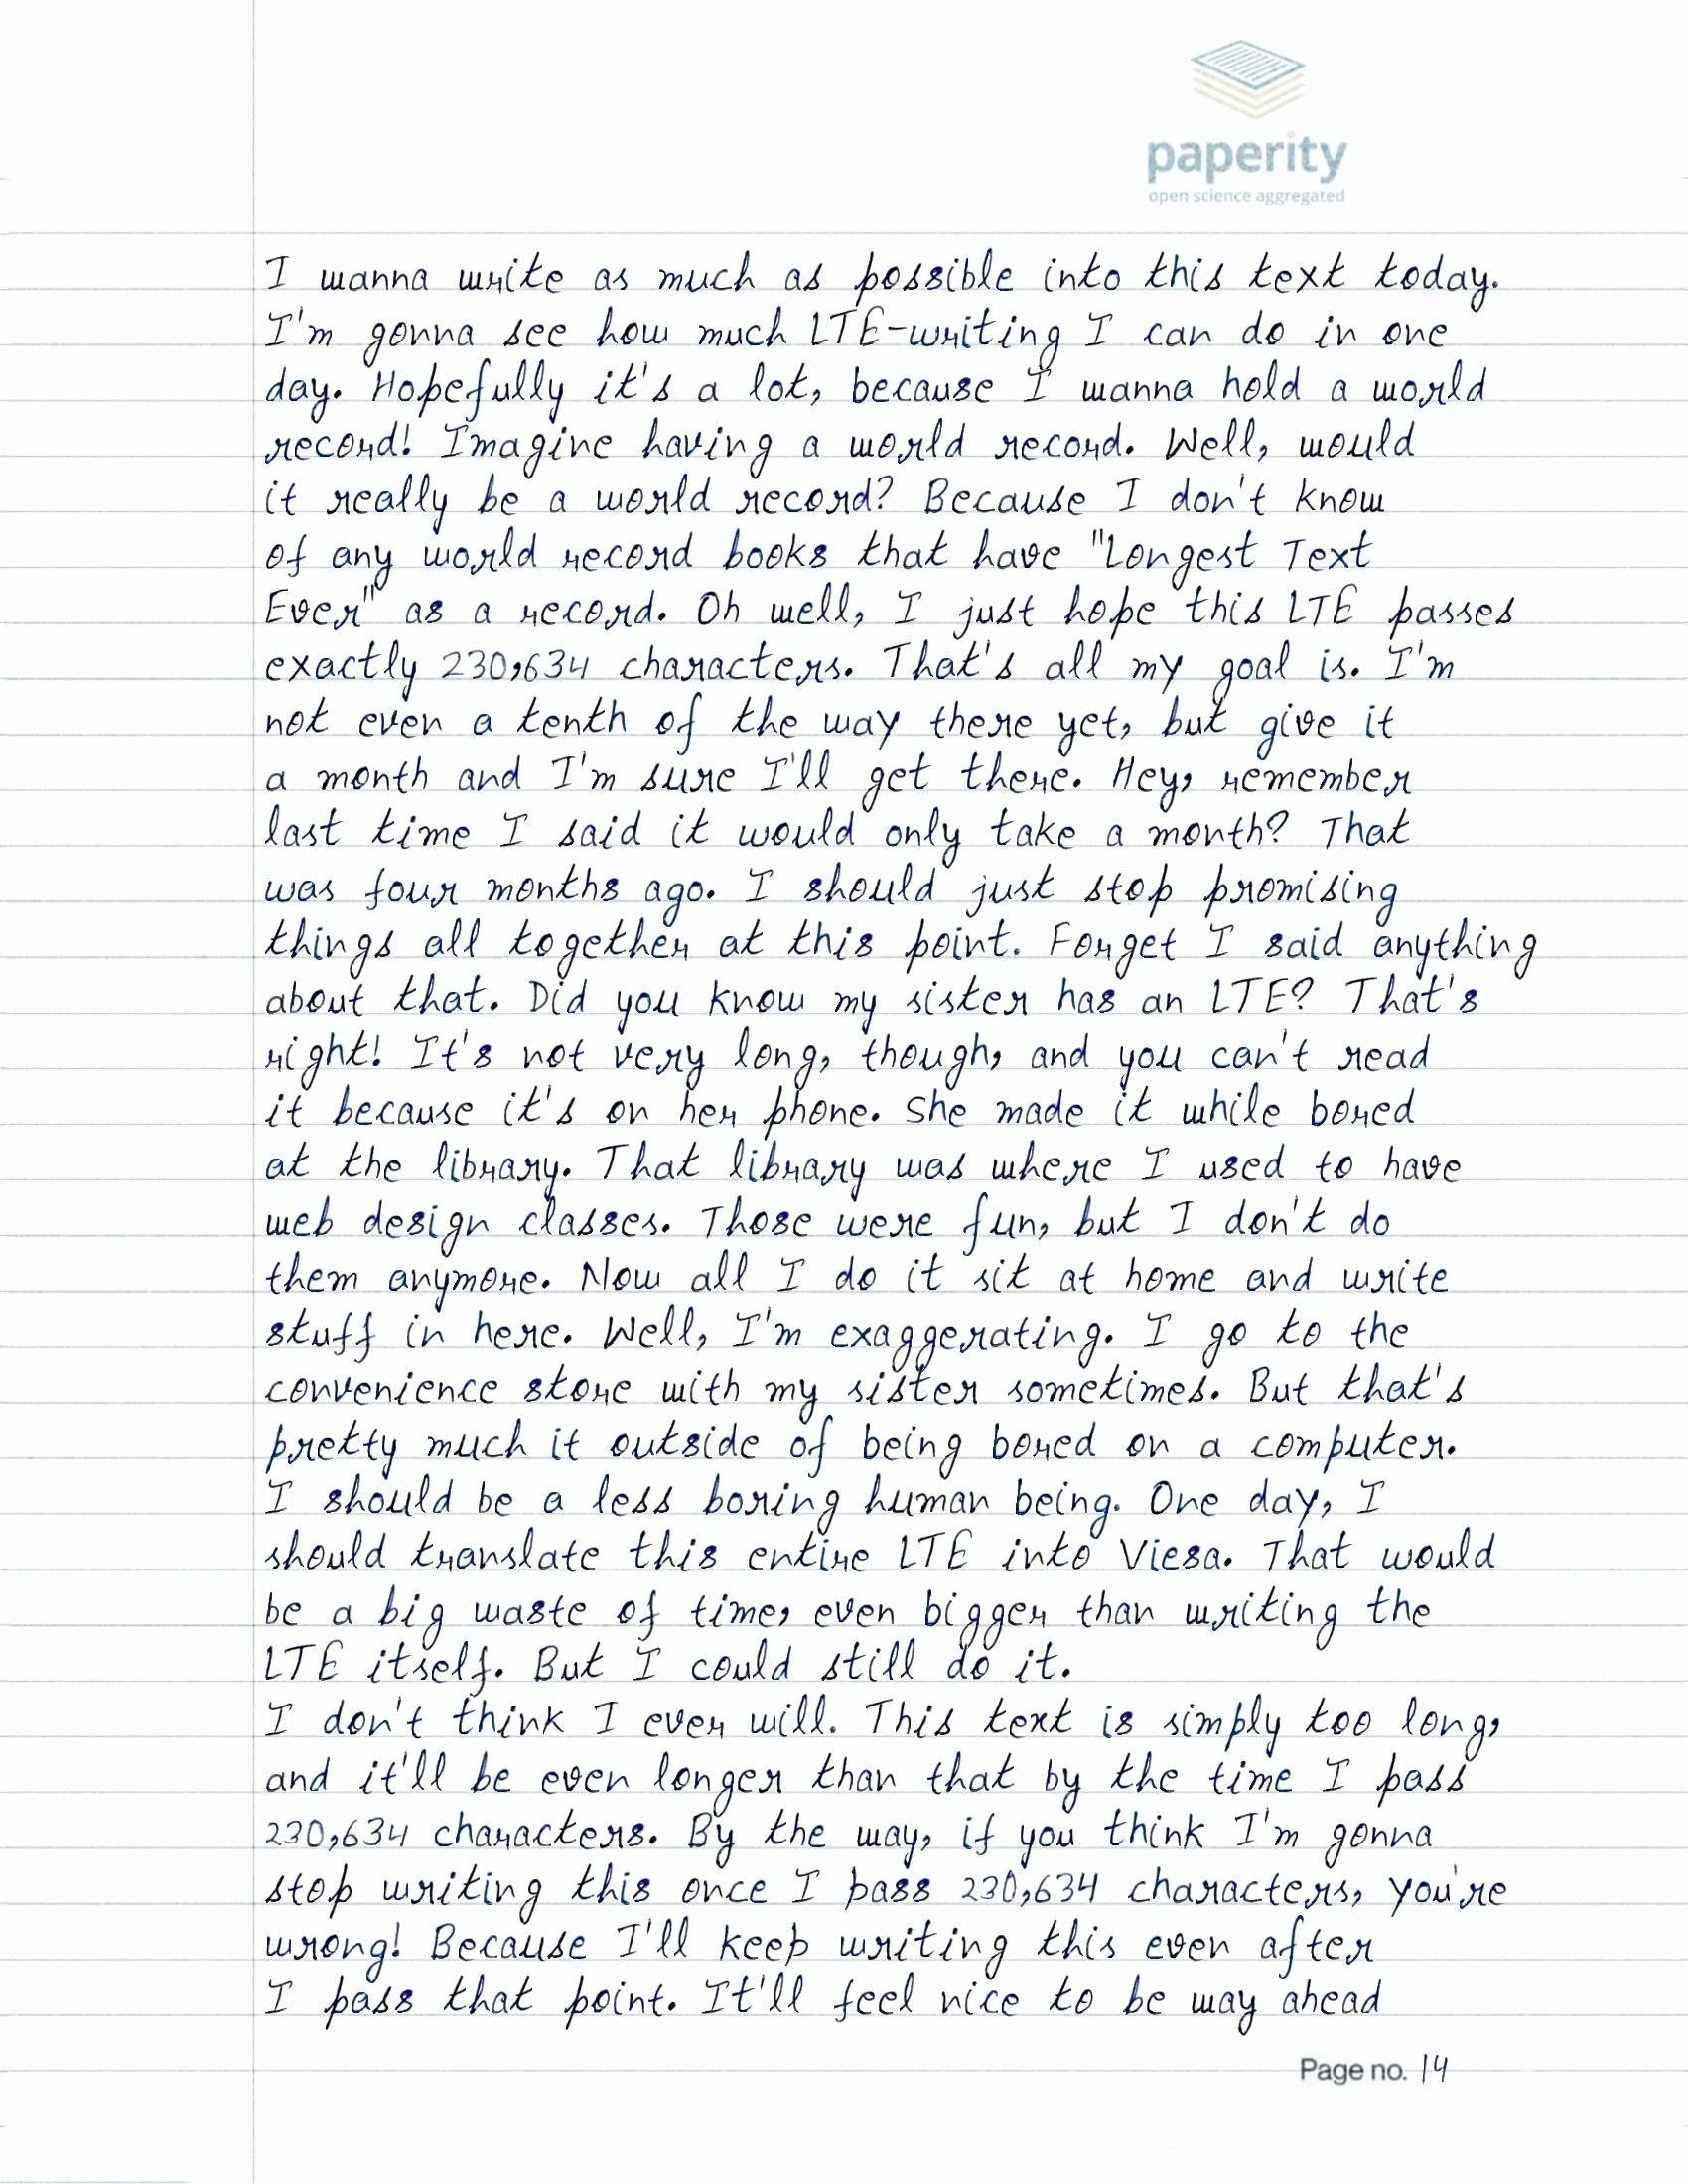 paperity
open science aggregated
I wanna write as much as possible into this text today.
I'm gonna see how much LTE-writing I can do in one
day. Hopefully it's a lot, because I wanna hold a world
record! Imagine having a world record. Well, would
it really be a world record? Because I don't know
of any world record books that have "Longest Text
Ever" as a record. Oh well, I just hope this LTE passes
exactly 230,634 characters. That's all my goal is. I'm
not even a tenth of the way there yet, but give it
a month and I'm sure I'll get there. Hey, remember
last time I said it would only take a month? That
was four months ago. I should just stop promising
things all together at this point. Forget I said anything
about that. Did you know my sister has an LTE? That's
right! It's not very long, though, and you can't read
it because it's on her phone. She made it while bored
at the library. That library was where I used to have
web design classes. Those were fun, but I don't do
them anymore. Now all I do it sit at home and write
stuff in here. Well, I'm exaggerating. I go to the
convenience store with my sister sometimes. But that's
pretty much it outside of being bored on a computer.
I should be a less boring human being. One day, I
should translate this entire LTE into Viesa. That would
be a big waste of time, even bigger than writing the
LTE itself. But I could still do it.
I don't think I ever will. This text is simply too long,
and it'll be even longer than that by the time I pass
230,634 characters. By the way, if you think I'm gonna
stop writing this once I pass 230,634 characters, you're
wrong! Because I'll keep writing this even after
I pass that point. It'll feel nice to be way ahead
Page no. 14